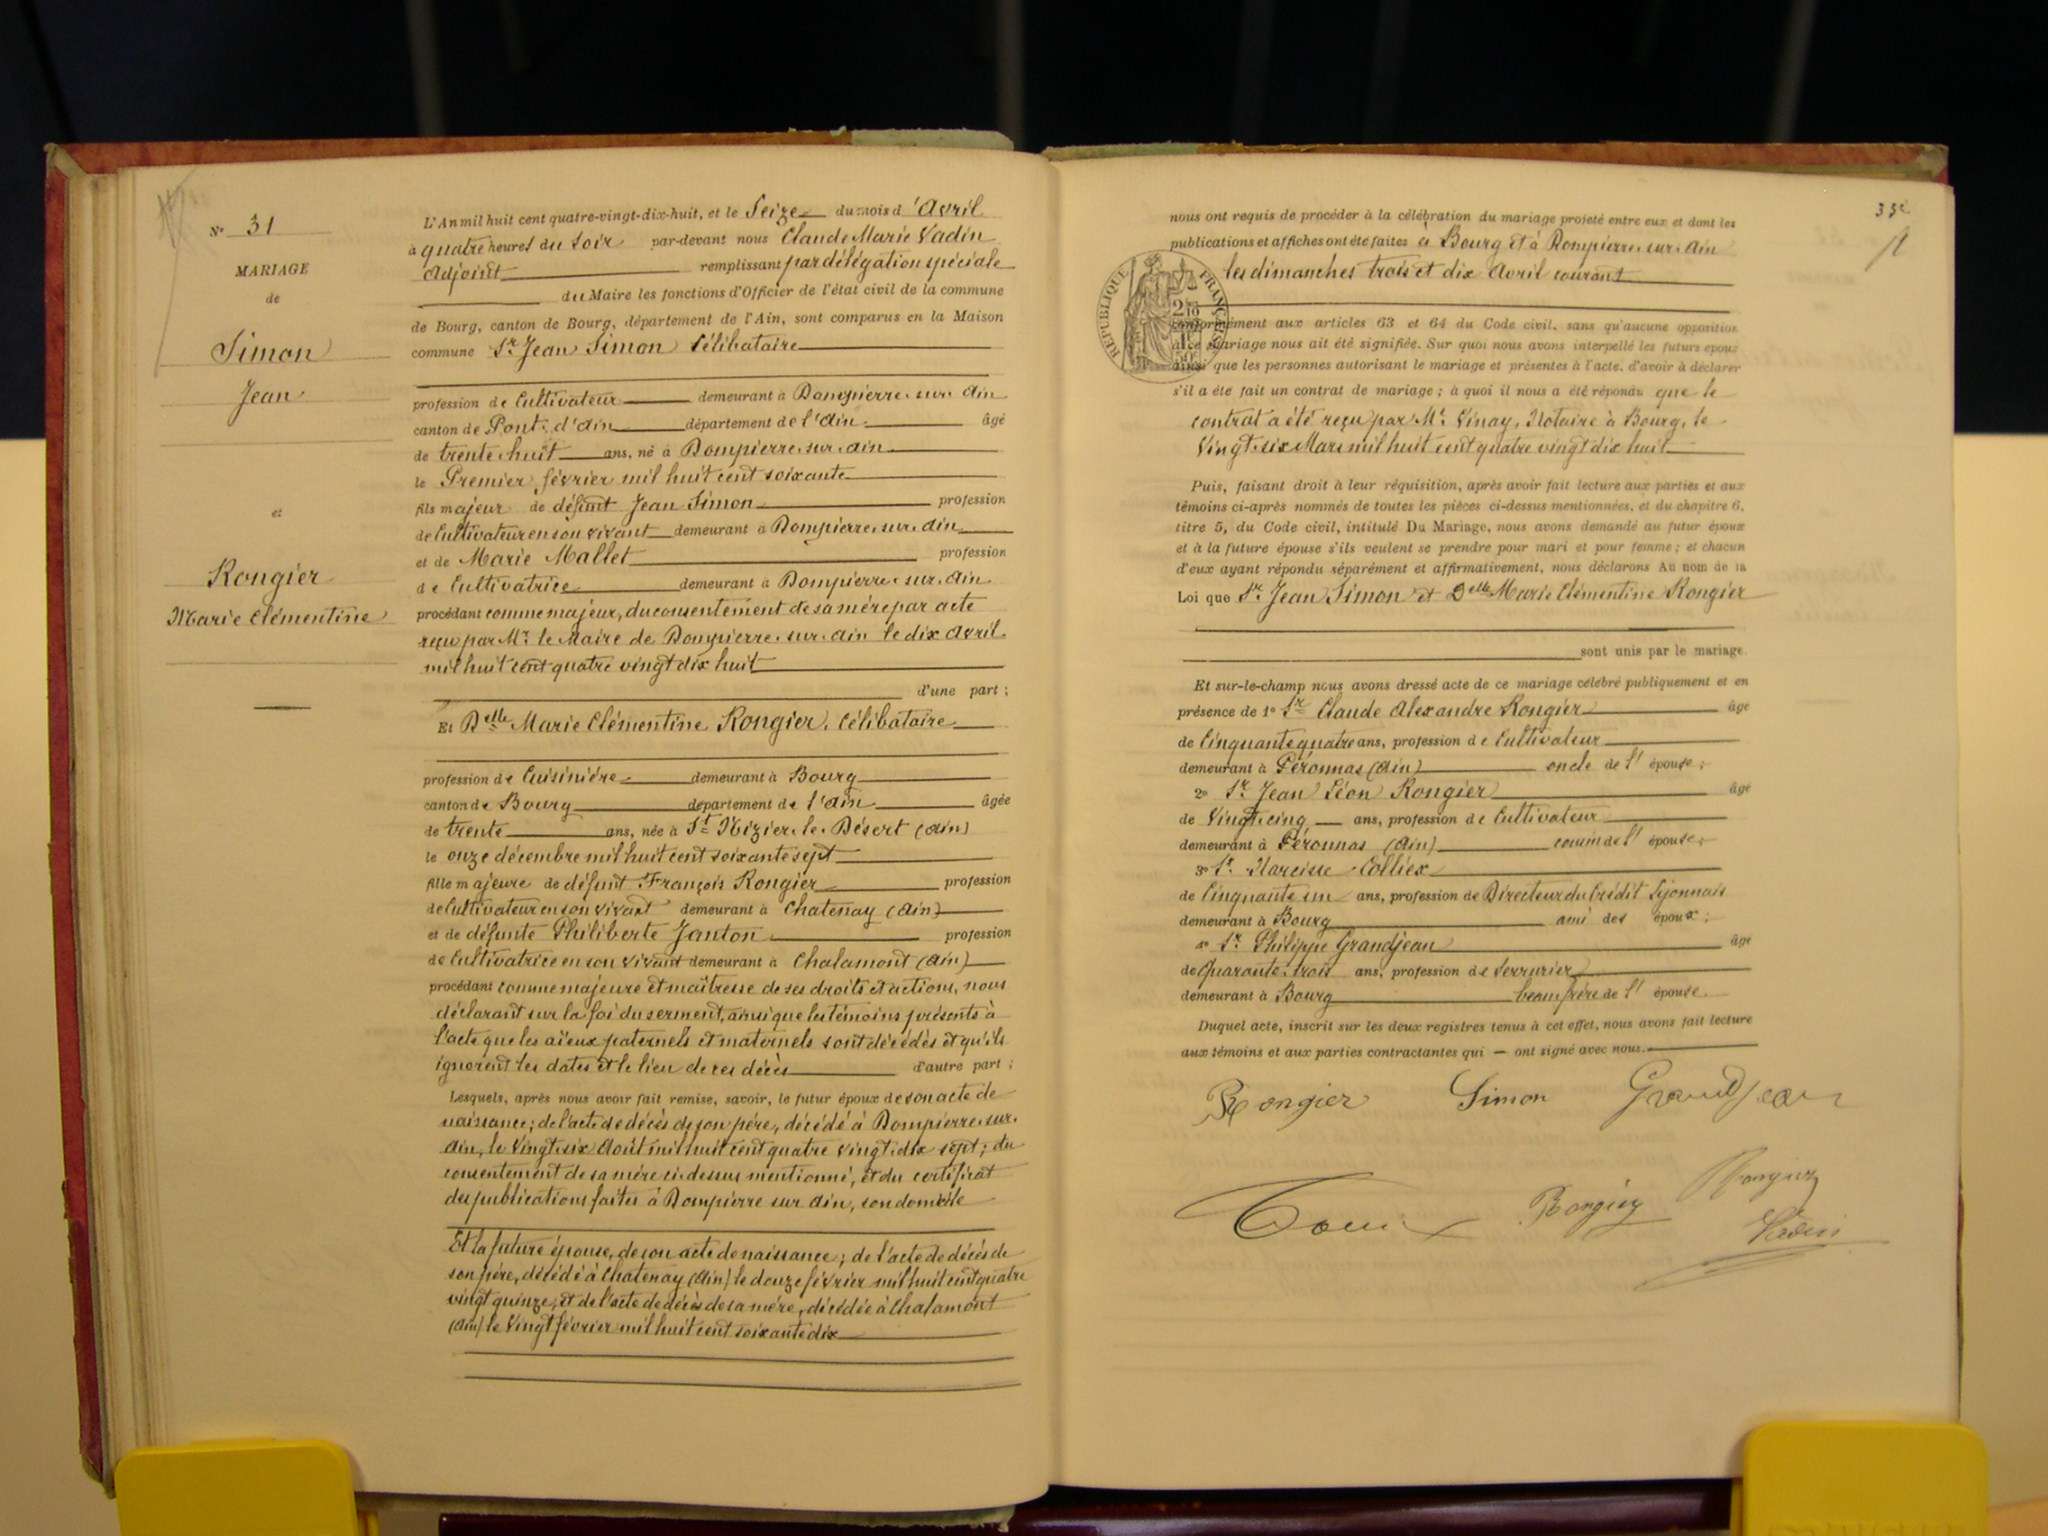 N° 31
MARIAGE
de
Simon
Jean
et
Rongier
Marie Clémentine
L'An mil huit cent quatre-vingt-dix-huit, et le Seize du mois d'Avril
à quatre heures du soir par-devant nous Claude Marie Vadin
Adjoint remplissant par délégation spéciale
du Maire les fonctions d'Officier de l'état civil de la commune
de Bourg, canton de Bourg, département de l'Ain, sont comparus en la Maison
commune Sr. Jean Simon Célibataire
profession de Cultivateur demeurant à Dompierre-sur-Ain
canton de Pont-d'Ain département de l'Ain âgé
de trente-huit ans, né à Dompierre-sur-Ain
le Premier février mil huit cent soixante
fils majeur de défunt Jean Simon profession
de Cultivateur en son vivant demeurant à Dompierre-sur-Ain
et de Marie Mallet profession
de Cultivatrice demeurant à Dompierre-sur-Ain
procédant comme majeur, du consentement de sa mère par acte
reçu par Mr. le Maire de Dompierre-sur-Ain le dix Avril
mil huit cent quatre vingt dix huit
d'une part ;
Et Delle Marie Clémentine Rongier, Célibataire
profession de Cuisinière demeurant à Bourg
canton de Bourg département de l'Ain âgée
de trente ans, née à St Nizier-le-Désert (Ain)
le onze décembre mil huit cent soixante sept
fille majeure de défunt François Rongier profession
de Cultivateur en son vivant demeurant à Chatenay (Ain)
et de défunte Philiberte Janton profession
de Cultivatrice en son vivant demeurant à Chalamont (Ain)
procédant comme majeure et maîtresse de ses droits et actions, nous
déclarant sur la foi du serment, ainsi que les témoins présents à
l'acte que les aïeux paternels et maternels sont décédés et qu'ils
ignorent les dates et le lieu de ces décès d'autre part ;
Lesquels, après nous avoir fait remise, savoir, le futur époux de son acte de
naissance ; de l'acte de décès de son père, décédé à Dompierre-sur-
Ain, le Vingt-six Août mil huit cent quatre vingt-dix sept ; du
consentement de sa mère ci-dessus mentionné, et du certificat
des publications faites à Dompierre sur Ain, son domicile
Et la future épouse, de son acte de naissance ; de l'acte de décès de
son père, décédé à Chatenay (Ain) le douze février mil huit cent quatre
vingt quinze, et de l'acte de décès de sa mère, décédée à Chalamont
(Ain) le Vingt février mil huit cent soixante dix
nous ont requis de procéder à la célébration du mariage projeté entre eux et dont les
publications et affiches ont été faites à Bourg et à Dompierre-sur-Ain
les dimanches trois et dix Avril courant
RÉPUBLIQUE FRANÇAISE
conformément aux articles 63 et 64 du Code civil, sans qu'aucune opposition
à ce mariage nous ait été signifiée. Sur quoi nous avons interpellé les futurs époux
ainsi que les personnes autorisant le mariage et présentes à l'acte, d'avoir à déclarer
s'il a été fait un contrat de mariage ; à quoi il nous a été répondu que le
contrat a été reçu par Me. Vinay, Notaire à Bourg, le
Vingt-six Mars mil huit cent quatre vingt dix huit
Puis, faisant droit à leur réquisition, après avoir fait lecture aux parties et aux
témoins ci-après nommés de toutes les pièces ci-dessus mentionnées, et du chapitre 6,
titre 5, du Code civil, intitulé Du Mariage, nous avons demandé au futur époux
et à la future épouse s'ils veulent se prendre pour mari et pour femme ; et chacun
d'eux ayant répondu séparément et affirmativement, nous déclarons Au nom de la
Loi que Sr. Jean Simon et Delle Marie Clémentine Rongier
sont unis par le mariage.
Et sur-le-champ nous avons dressé acte de ce mariage célébré publiquement et en
présence de 1° Sr Claude Alexandre Rongier âgé
de Cinquante quatre ans, profession de Cultivateur
demeurant à Péronnas (Ain) oncle de l'épouse ;
2° Sr. Jean Léon Rongier âgé
de Vingt-cinq ans, profession de Cultivateur
demeurant à Péronnas (Ain) cousin de l'épouse ;
3° Sr. Narcisse Colliex
de Cinquante un ans, profession de Directeur du Crédit Lyonnais
demeurant à Bourg ami des époux ;
4° Sr. Philippe Grandjean âgé
de Quarante-trois ans, profession de Serrurier
demeurant à Bourg beau frère de l'épouse
Duquel acte, inscrit sur les deux registres tenus à cet effet, nous avons fait lecture
aux témoins et aux parties contractantes qui — ont signé avec nous.
Rongier Simon Grandjean
Rongier Rongier
Vadin